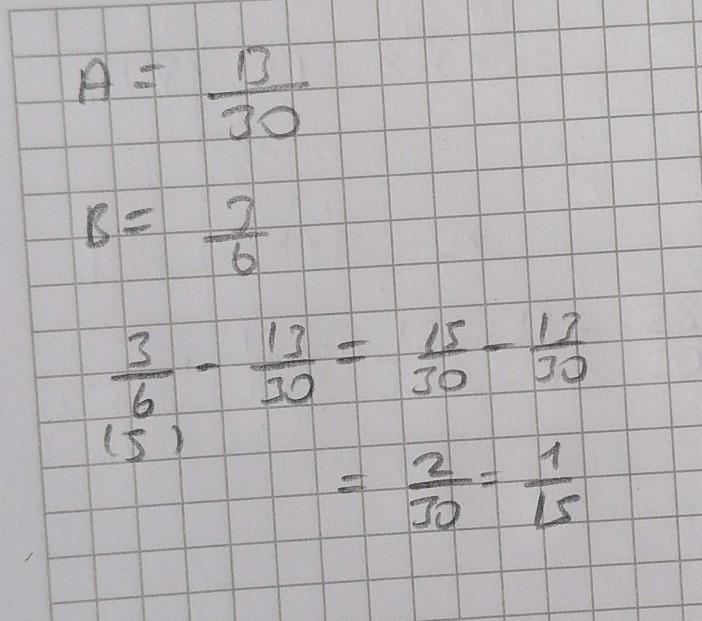 A = 13/30
B = 3/6
3/6 - 13/30 = 15/30 - 13/30
(5)
= 2/30 = 1/15